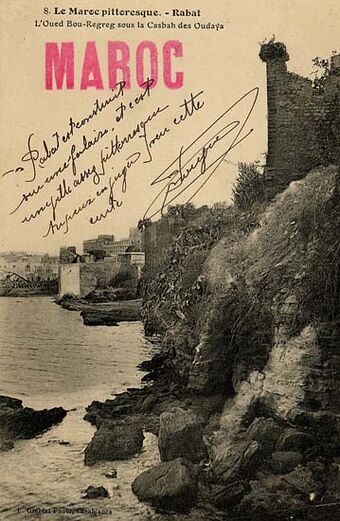 8. Le Maroc pittoresque. - Rabat
L'Oued Bou-Regreg sous la Casbah des Oudaya
MAROC
Rabat est construit
sur une falaise, et c'est
une ville assez pittoresque
tu peux en juger par cette
carte
P. Grébert Photo, Casablanca